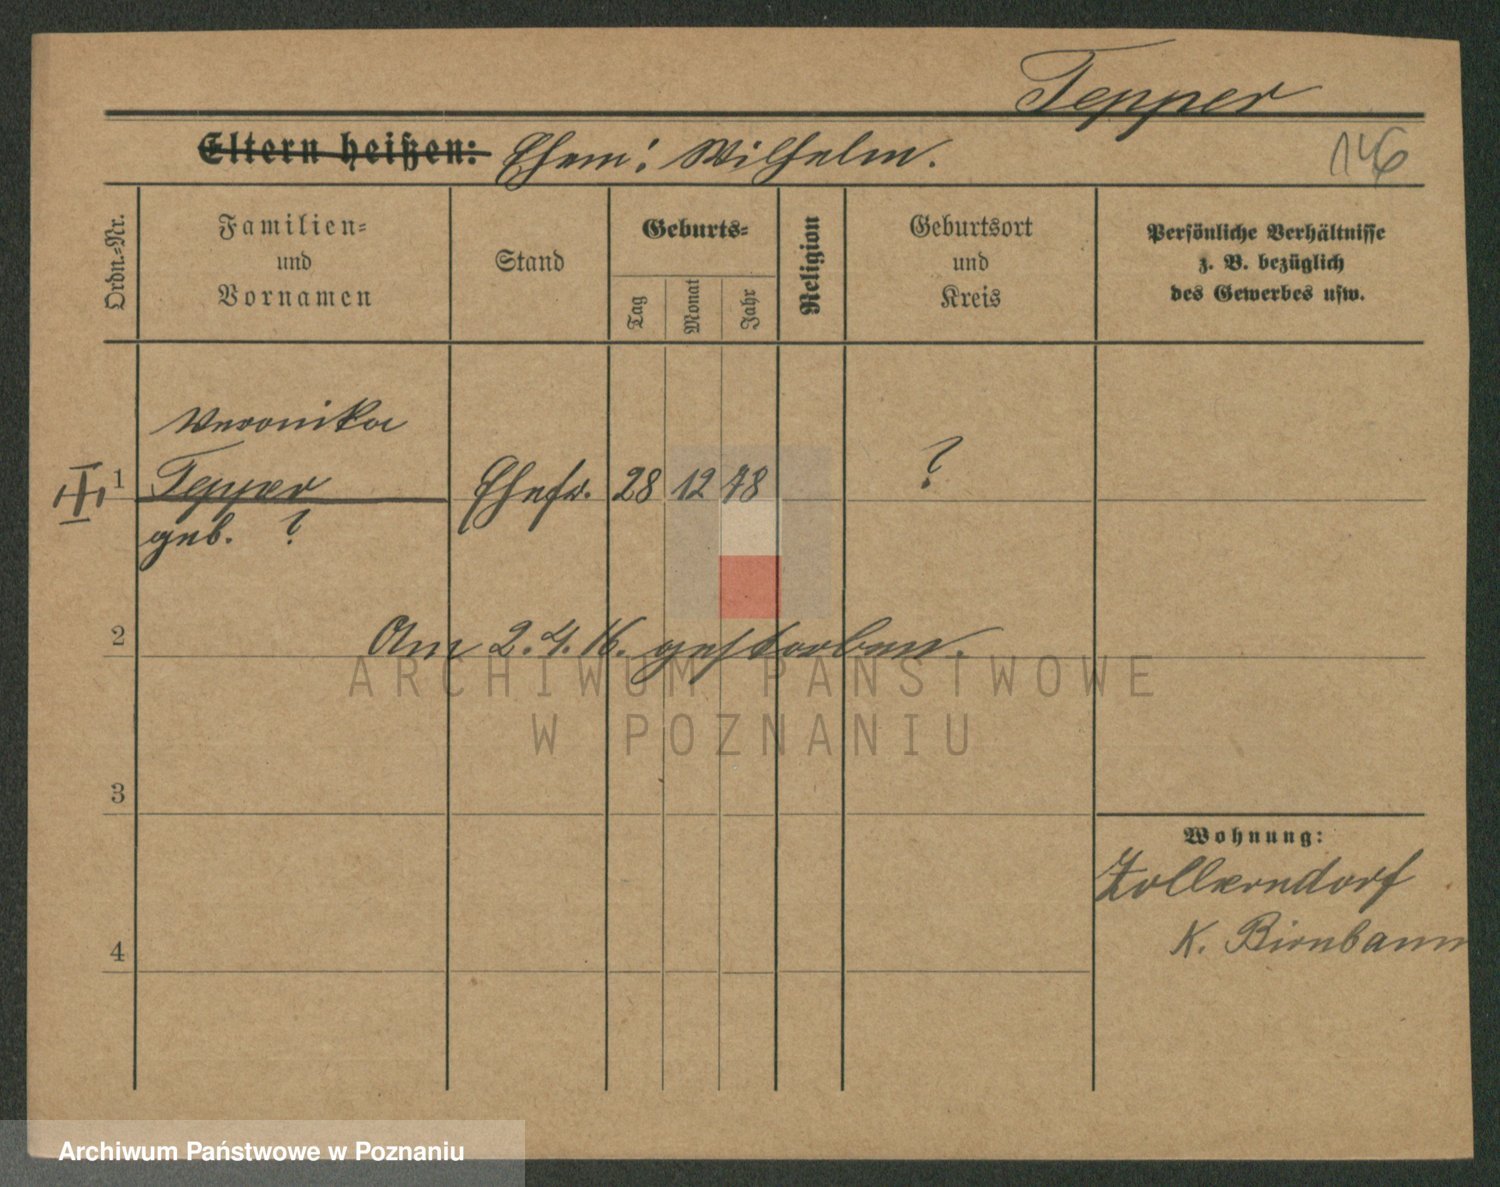 Tepper
Eltern heißen: Ehem: Wilhelm.
146
Ordn.=Nr.
Familien=
und
Vornamen
Stand
Geburts=
Tag
Monat
Jahr
Religion
Geburtsort
und
Kreis
Persönliche Verhältnisse
z. B. bezüglich
des Gewerbes usw.
Veronika
1 Tepper Ehefr. 28 12 78 ?
geb. ?
2 Am 2.4.16. gestorben.
ARCHIWUM PAŃSTWOWE
W POZNANIU
3
Wohnung:
Zollerndorf
4 K. Birnbaum
Archiwum Państwowe w Poznaniu